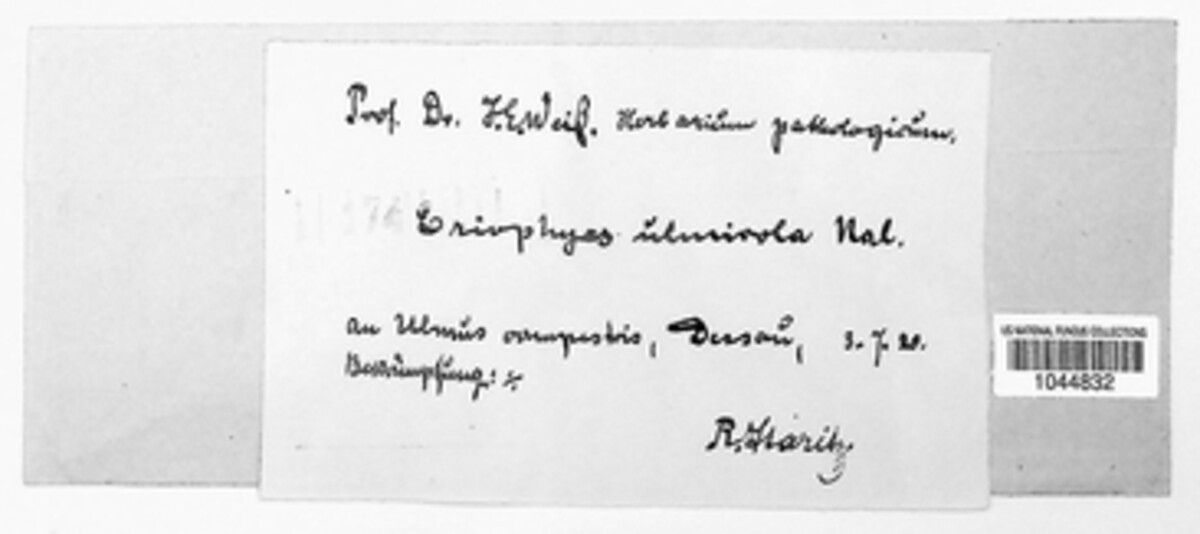 Prof. Dr. J. E. Weiß. Herbarium pathologicum.
Eriophyes ulmicola Nal.
an Ulmus campestris, Dessau, 3. 7. 20.
Bekämpfung: 
R. Staritz.
US NATIONAL FUNGUS COLLECTIONS
1044832